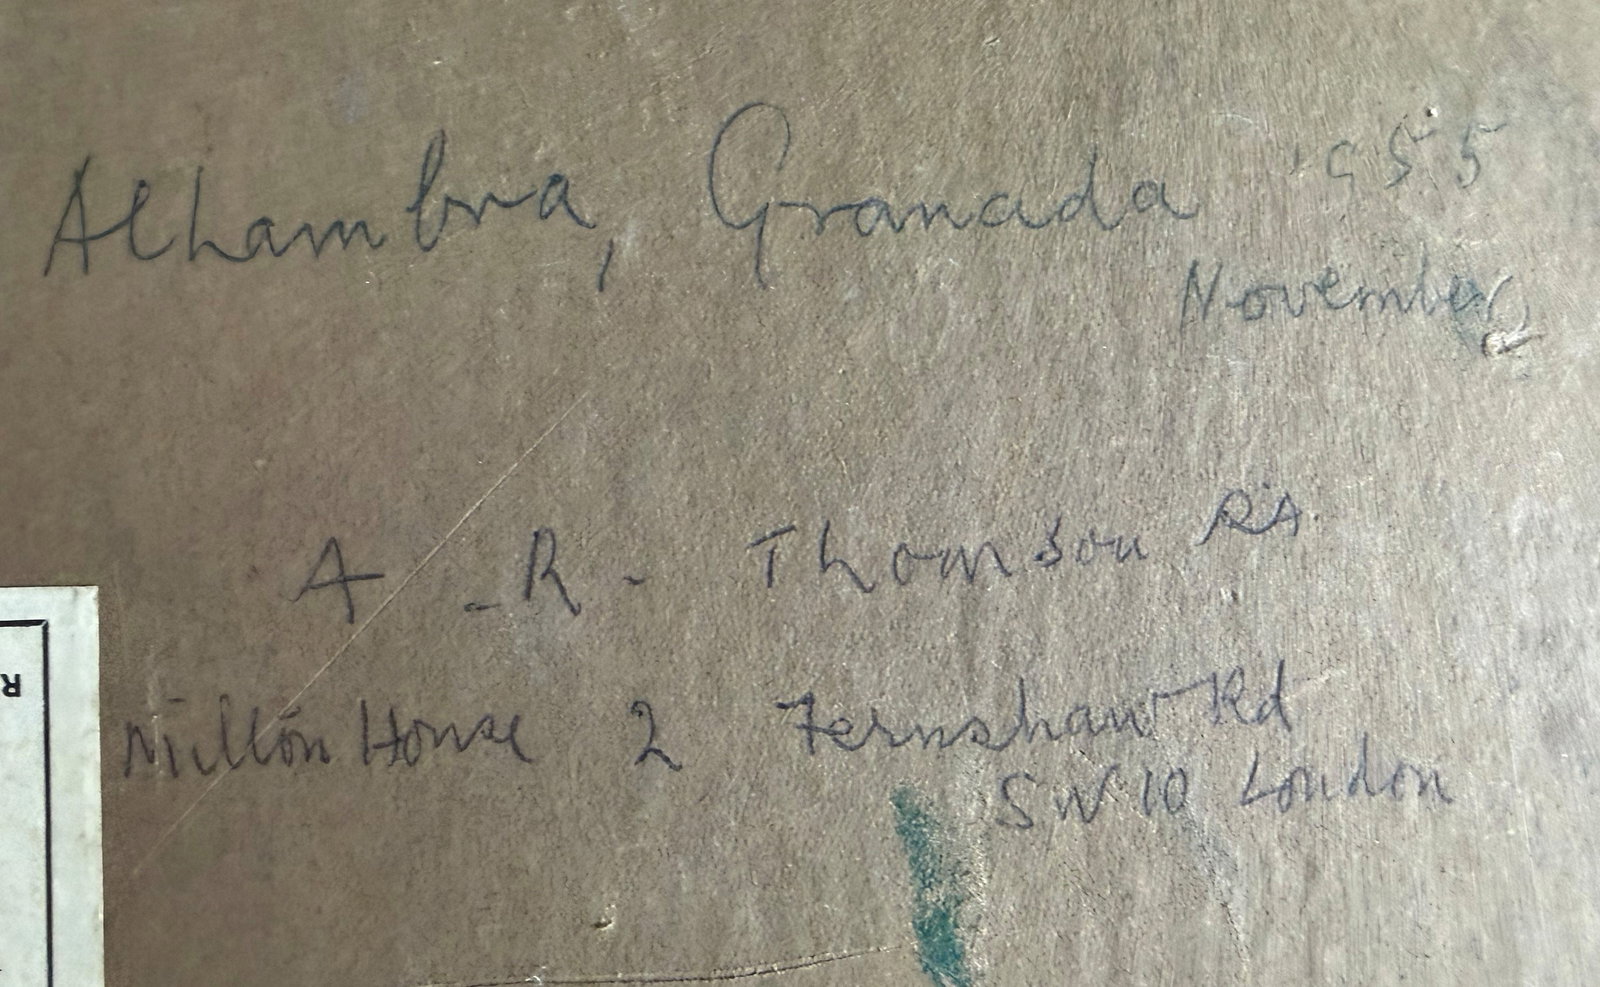 Alhambra, Granada 1955
November
A - R - Thomson RA.
Milton House 2 Fernshaw Rd
SW 10 London
R